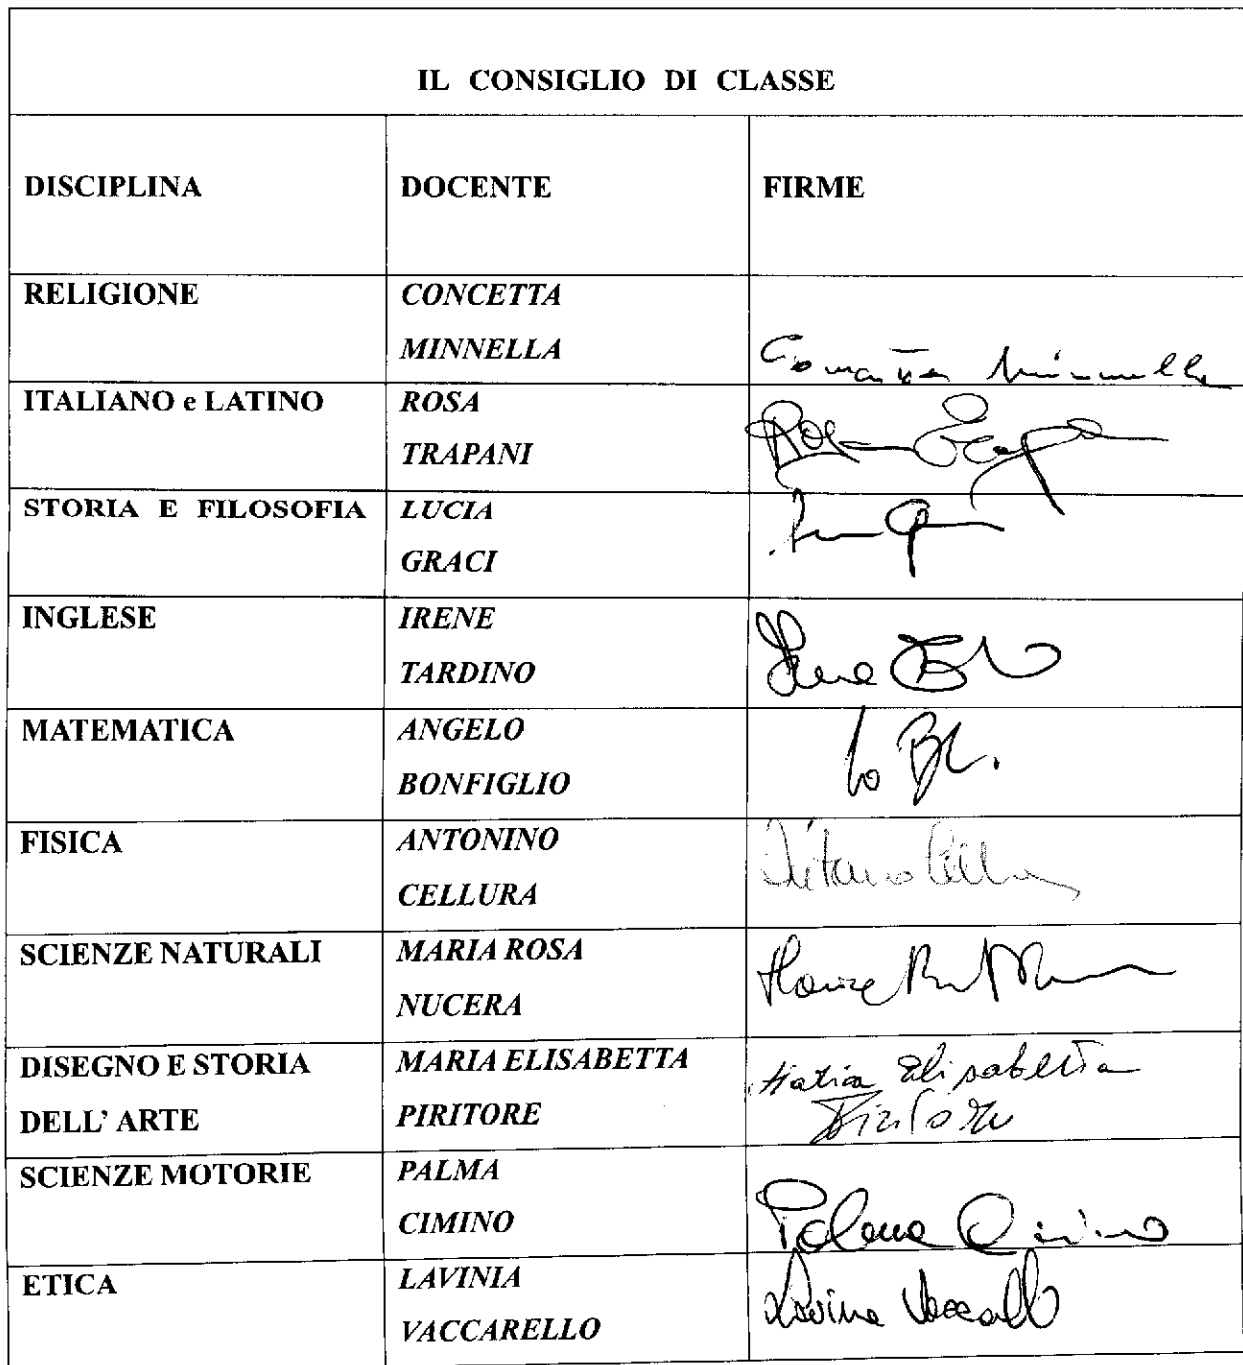 IL CONSIGLIO DI CLASSE
DISCIPLINA DOCENTE FIRME
RELIGIONE CONCETTA
MINNELLA
Minnella
ITALIANO e LATINO ROSA
TRAPANI
Rosa
STORIA E FILOSOFIA LUCIA
GRACI
INGLESE IRENE
TARDINO
Irene
MATEMATICA ANGELO
BONFIGLIO
FISICA ANTONINO
CELLURA
SCIENZE NATURALI MARIA ROSA
NUCERA
DISEGNO E STORIA MARIA ELISABETTA
Maria Elisabetta
DELL' ARTE PIRITORE
Piritore
SCIENZE MOTORIE PALMA
CIMINO
Palma Cimino
ETICA LAVINIA
VACCARELLO
Lavinia Vaccarello